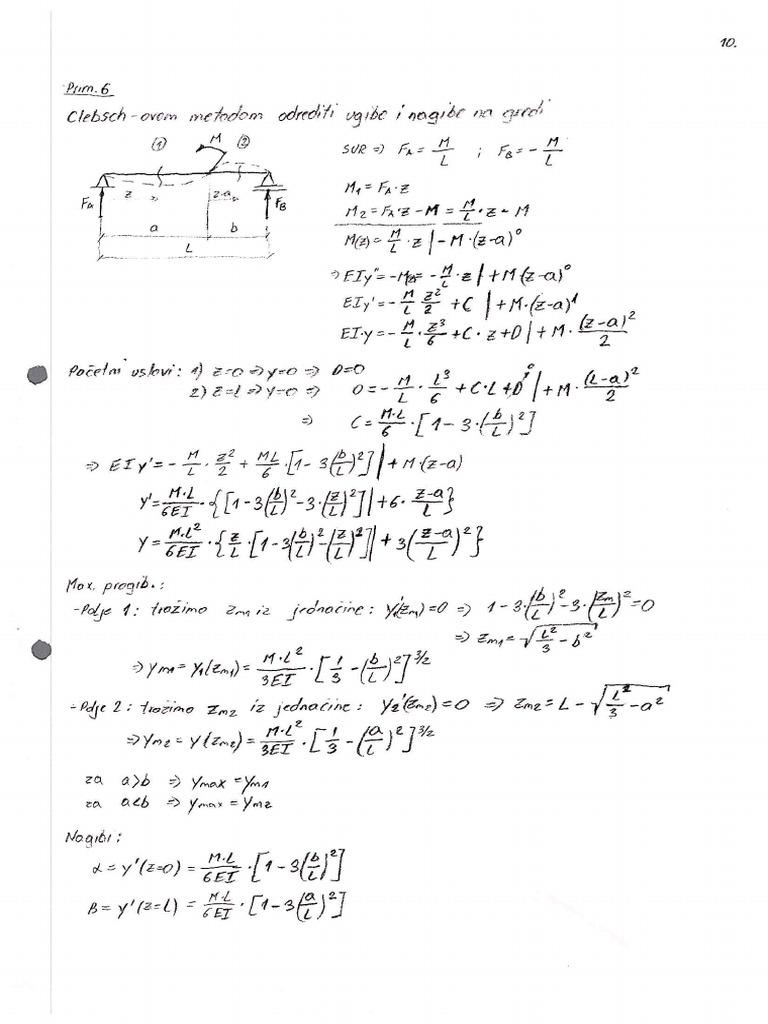 10.
Prim. 6
Clebsch-ovom metodom odrediti ugibe i nagibe na gredi
(1) M (2)
SUR => F_A = M/L ; F_B = -M/L
z z-a
F_A F_B
a b
L
M_1 = F_A·z
M_2 = F_A·z - M = M/L·z - M
M(z) = M/L·z | - M·(z-a)^0
=> EIy'' = -M = -M/L·z | + M(z-a)^0
EIy' = -M/L z^2/2 + C | + M·(z-a)^1
EI·y = -M/L·z^3/6 + C·z + D | + M·(z-a)^2/2
Početni uslovi: 1) z=0 => y=0 => D=0
2) z=L => y=0 => 0 = -M/L·L^3/6 + C·L + D^0 | + M·(L-a)^2/2
=> C = M·L/6·[1-3·(b/L)^2]
=> EIy' = -M/L·z^2/2 + ML/6·[1-3(b/L)^2] | + M(z-a)
y' = M·L/6EI·{[1-3(b/L)^2-3·(z/L)^2] | + 6·z-a/L}
y = M·L^2/6EI·{z/L·[1-3(b/L)^2-(z/L)^2] | + 3(z-a/L)^2}
Max. progib.:
-Polje 1: tražimo z_m1 iz jednačine: y_1'(z_m1)=0 => 1-3·(b/L)^2-3·(z_m/L)^2=0
=> z_m1 = √(L^2/3 - b^2)
=> y_m1 = y_1(z_m1) = M·L^2/3EI·[1/3-(b/L)^2]^3/2
-Polje 2: tražimo z_m2 iz jednačine: y_2'(z_m2)=0 => z_m2 = L - √(L^2/3 - a^2)
=> y_m2 = y(z_m2) = M·L^2/3EI·[1/3-(a/L)^2]^3/2
za a>b => y_max = y_m1
za a<b => y_max = y_m2
Nagibi:
α = y'(z=0) = M·L/6EI·[1-3(b/L)^2]
β = y'(z=L) = M·L/6EI·[1-3(a/L)^2]